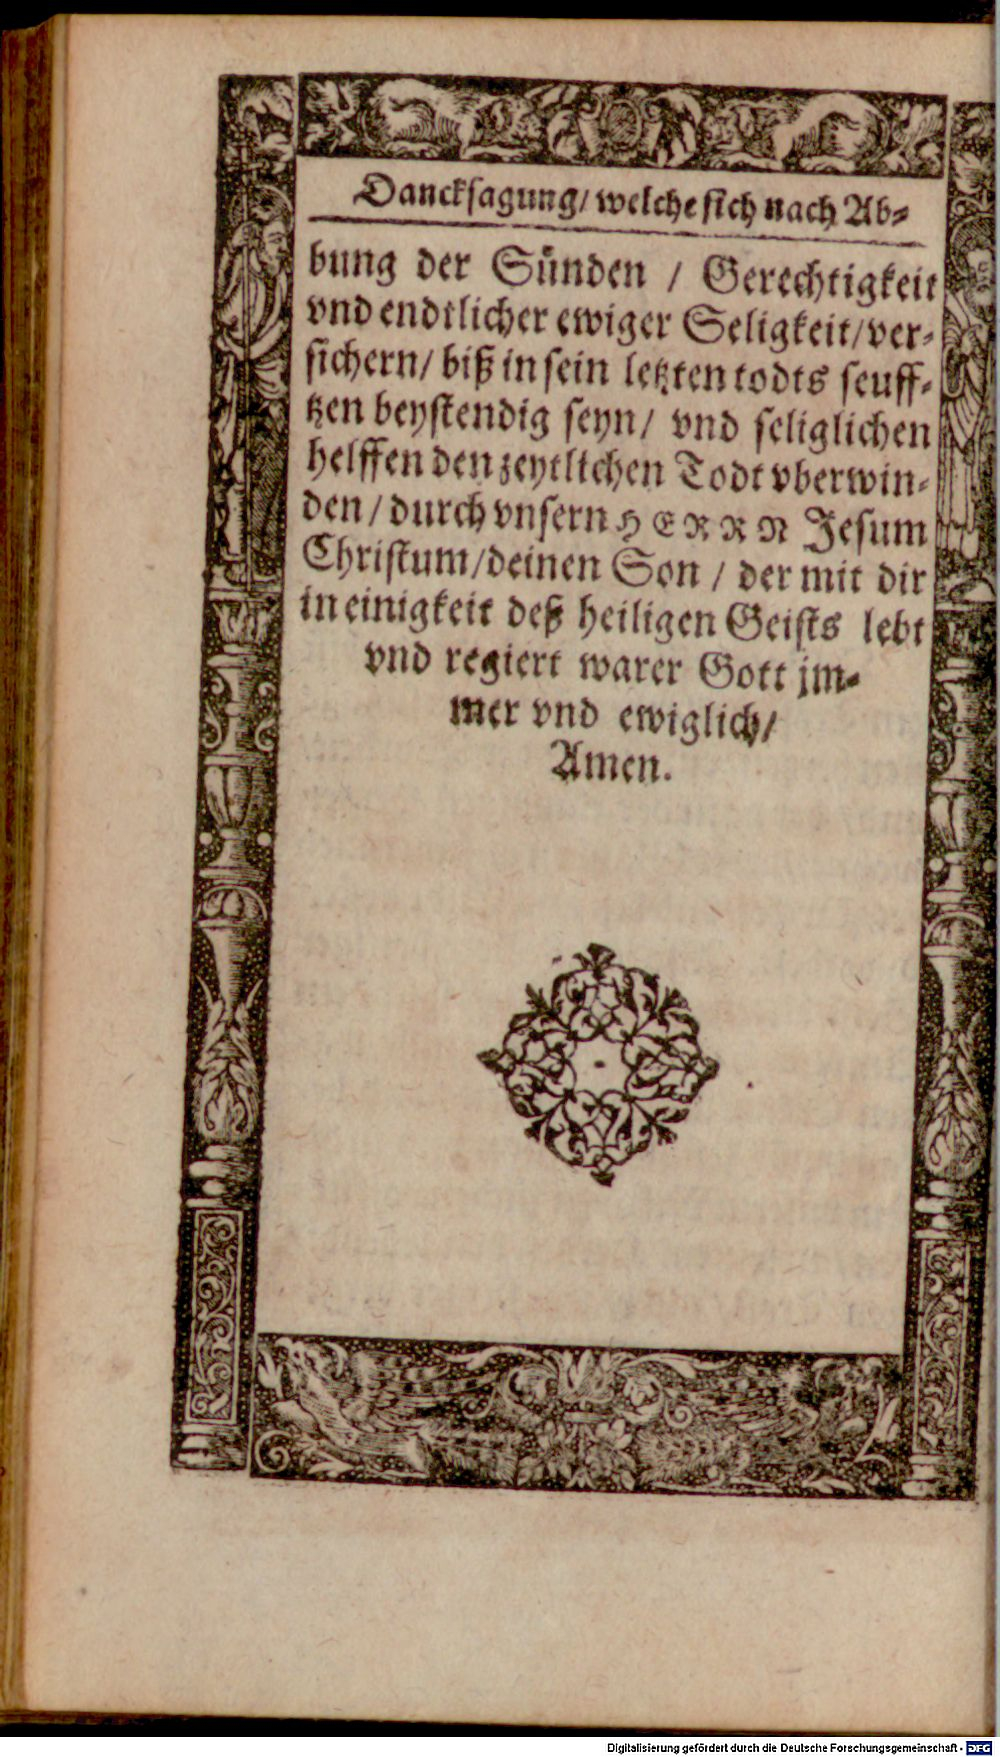 Dancksagung/ welche sich nach Ab-
bung der Sünden / Gerechtigkeit
vnd endtlicher ewiger Seligkeit/ ver-
sichern/ biß in sein letzten todts seuff-
tzen beystendig seyn/ vnd seliglichen
helffen den zeytlichen Todt vberwin-
den / durch vnsern HERRN Jesum
Christum/ deinen Son / der mit dir
in einigkeit deß heiligen Geists lebt
vnd regiert warer Gott jm-
mer vnd ewiglich/
Amen.
Digitalisierung gefördert durch die Deutsche Forschungsgemeinschaft - DFG